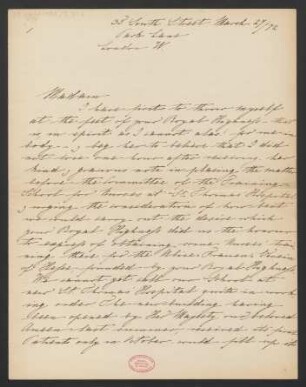 35 South Street March 27/72
Park Lane
London W.
Madam
I have first to throw myself
at the feet of your Royal Highness that
is in spirit as I cannot alas! for me in
body — & beg her to believe that I did
not lose one hour after receiving her
kind & gracious note in placing the matter
before the Committee of the Training
School for Nurses at St Thomas' Hospital
& urging the consideration of how best
we could carry out the desire which
your Royal Highness did us the honour
to express of obtaining some Nurses' train
ing there for the Victoria
of founded by your Royal Highness
We cannot yet call our School at
new St Thomas' Hospital quite in work
ing order The new building having
been opened by Her Majesty our beloved
Queen last summer received its first
Patients only in October & could fill up its